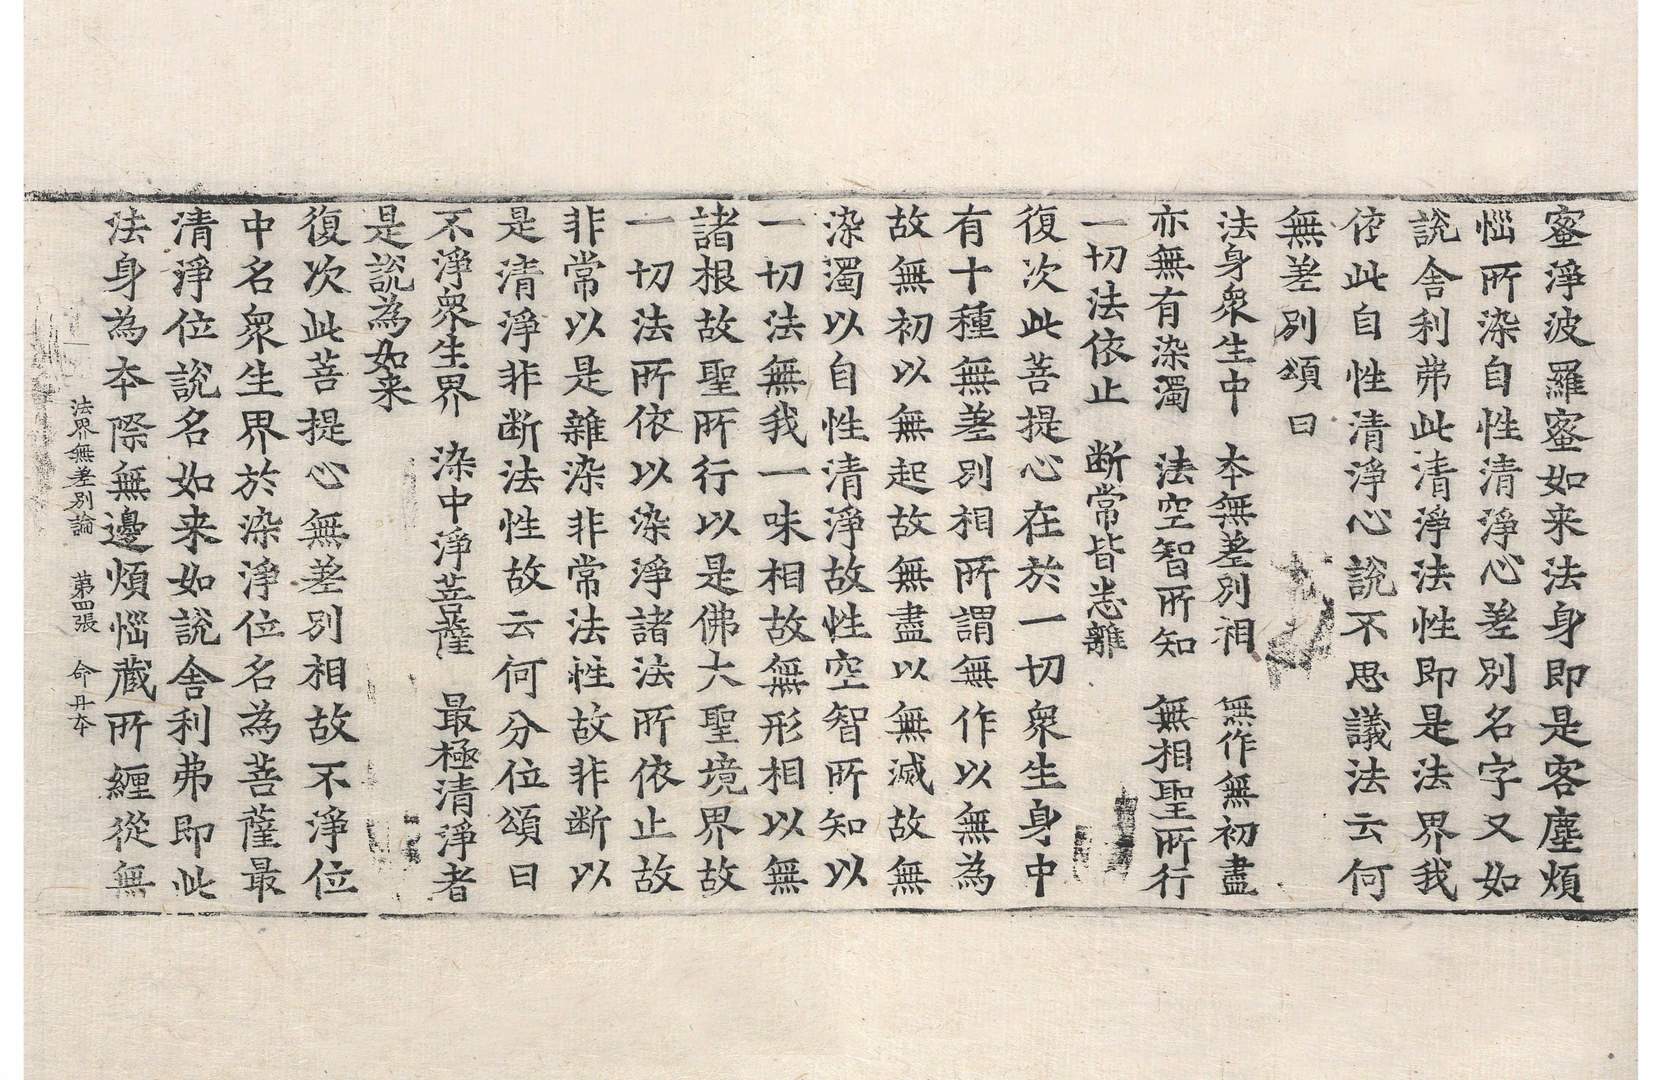 蜜淨波羅蜜如来法身即是客塵煩
惱所染自性清淨心差別名字又如
說舍利弗此清淨法性即是法界我
依此自性清淨心說不思議法云何
無差別頌曰
法身衆生中　本無差別相　無作無初盡
亦無有染濁　法空智所知　無相聖所行
一切法依止　断常皆悉離
復次此菩提心在於一切衆生身中
有十種無差別相所謂無作以無為
故無初以無起故無盡以無滅故無
染濁以自性清淨故性空智所知以
一切法無我一味相故無形相以無
諸根故聖所行以是佛大聖境界故
一切法所依以染淨諸法所依止故
非常以是雜染非常法性故非断以
是清淨非断法性故云何分位頌曰
不淨衆生界　染中淨菩薩　最極清淨者
是說為如来
復次此菩提心無差別相故不淨位
中名衆生界於染淨位名為菩薩最
清淨位說名如来如說舍利弗即此
法身為本際無邊煩惱藏所纏從無
法界無差別論　第四張　命丹本